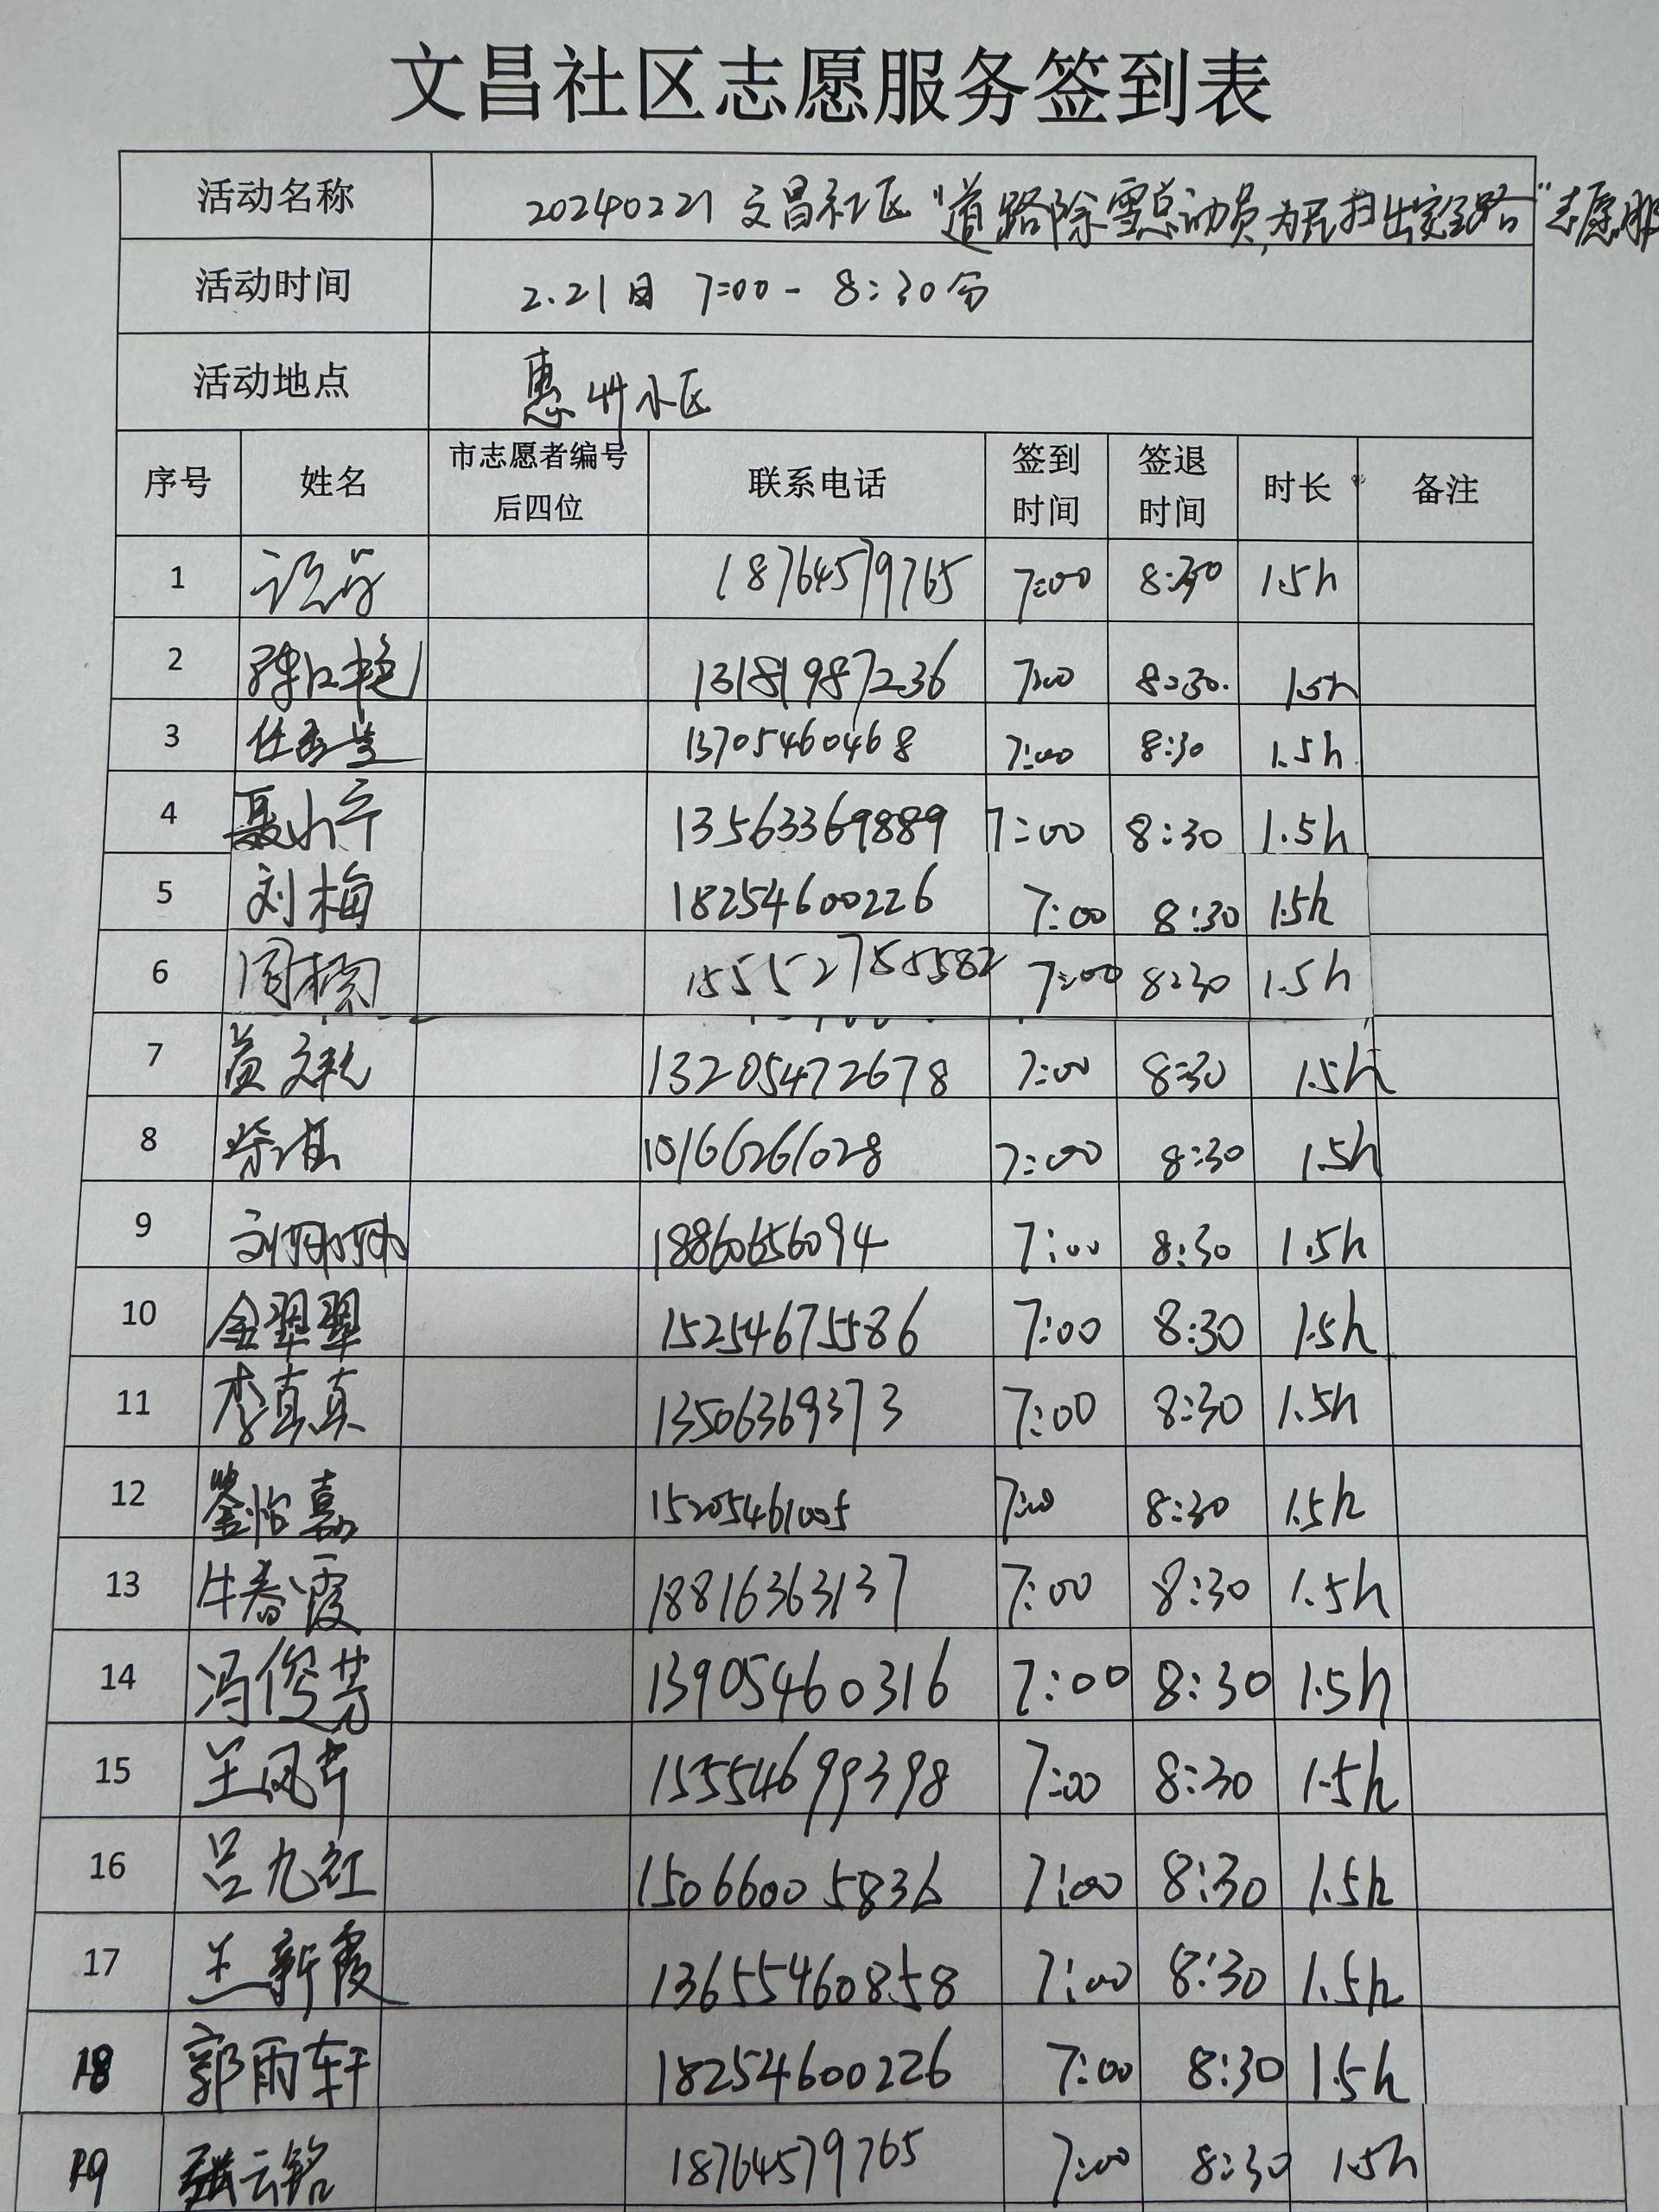 文昌社区志愿服务签到表
活动名称 20240221 文昌社区"道路除雪总动员,为民扫出安全路"志愿服
活动时间 2.21日 7:00-8:30分
活动地点 惠州小区
序号 姓名 市志愿者编号后四位 联系电话 签到时间 签退时间 时长 备注
1 18764579765 7:00 8:30 1.5h
2 13181987236 7:00 8:30. 1.5h
3 13705460468 7:00 8:30 1.5h
4 聂小平 13563369889 7:00 8:30 1.5h
5 刘梅 18254600226 7:00 8:30 1.5h
6 7:00 8:30 1.5h
7 13205472678 7:00 8:30 1.5h
8 7:00 8:30 1.5h
9 18860656094 7:00 8:30 1.5h
10 金翠翠 15254675586 7:00 8:30 1.5h
11 李真真 13506369373 7:00 8:30 1.5h
12 15205461005 7:00 8:30 1.5h
13 牛春霞 18816363137 7:00 8:30 1.5h
14 冯俊芳 13905460316 7:00 8:30 1.5h
15 王凤芹 15554699398 7:00 8:30 1.5h
16 吕九红 15066005836 7:00 8:30 1.5h
17 王新霞 13655460858 7:00 8:30 1.5h
18 郭雨轩 18254600226 7:00 8:30 1.5h
19 张云铭 18764579765 7:00 8:30 1.5h